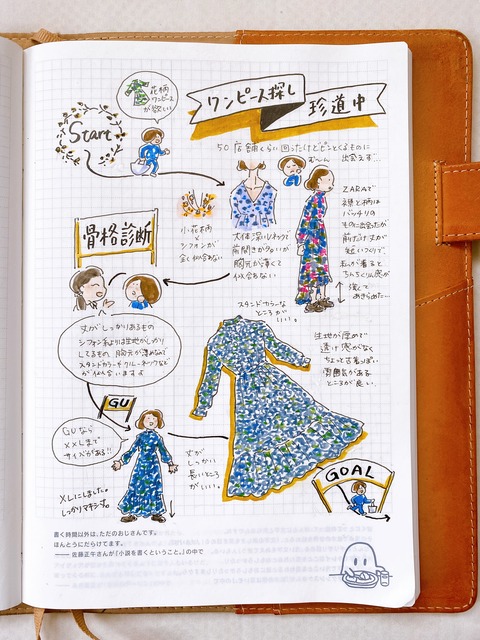 花柄
ワンピース
が欲しい
ワンピース探し
珍道中
Start
50店舗くらい回ったけどピンとくるものに
出会えず…
むーん
ZARAで
襟と柄は
バッチリの
ものに出会ったが
前だけ丈が
短いつくりで、
私が着ると
ちんちくりん感が
強くて
あきらめた…
小花柄
シフォンが
全く似合わない
大体深いVネックで
前開きが多いが
胸元が薄くて
似合わない
骨格診断
丈がしっかりあるもの
シフォンよりは生地がしっかり
してるもの 胸元が薄めなので
スタンドカラーやクルーネックなど
が似合いますよ
スタンドカラーな
ところが
いい。
生地が厚めで
透け感がなく
ちょっと古着っぽい
雰囲気がある
ところが良い。
GU
GUなら
XXLまで
サイズがある!!
XLにしました。
しっかりマキシ丈。
丈が
しっかり
長いところ
がいい。
GOAL
書く時間以外は、ただのおじさんです。
ほんとうにだらけてます。
── 佐藤正午さんが『小説を書くということ。』の中で